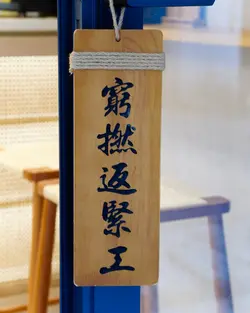 窮撚返緊工